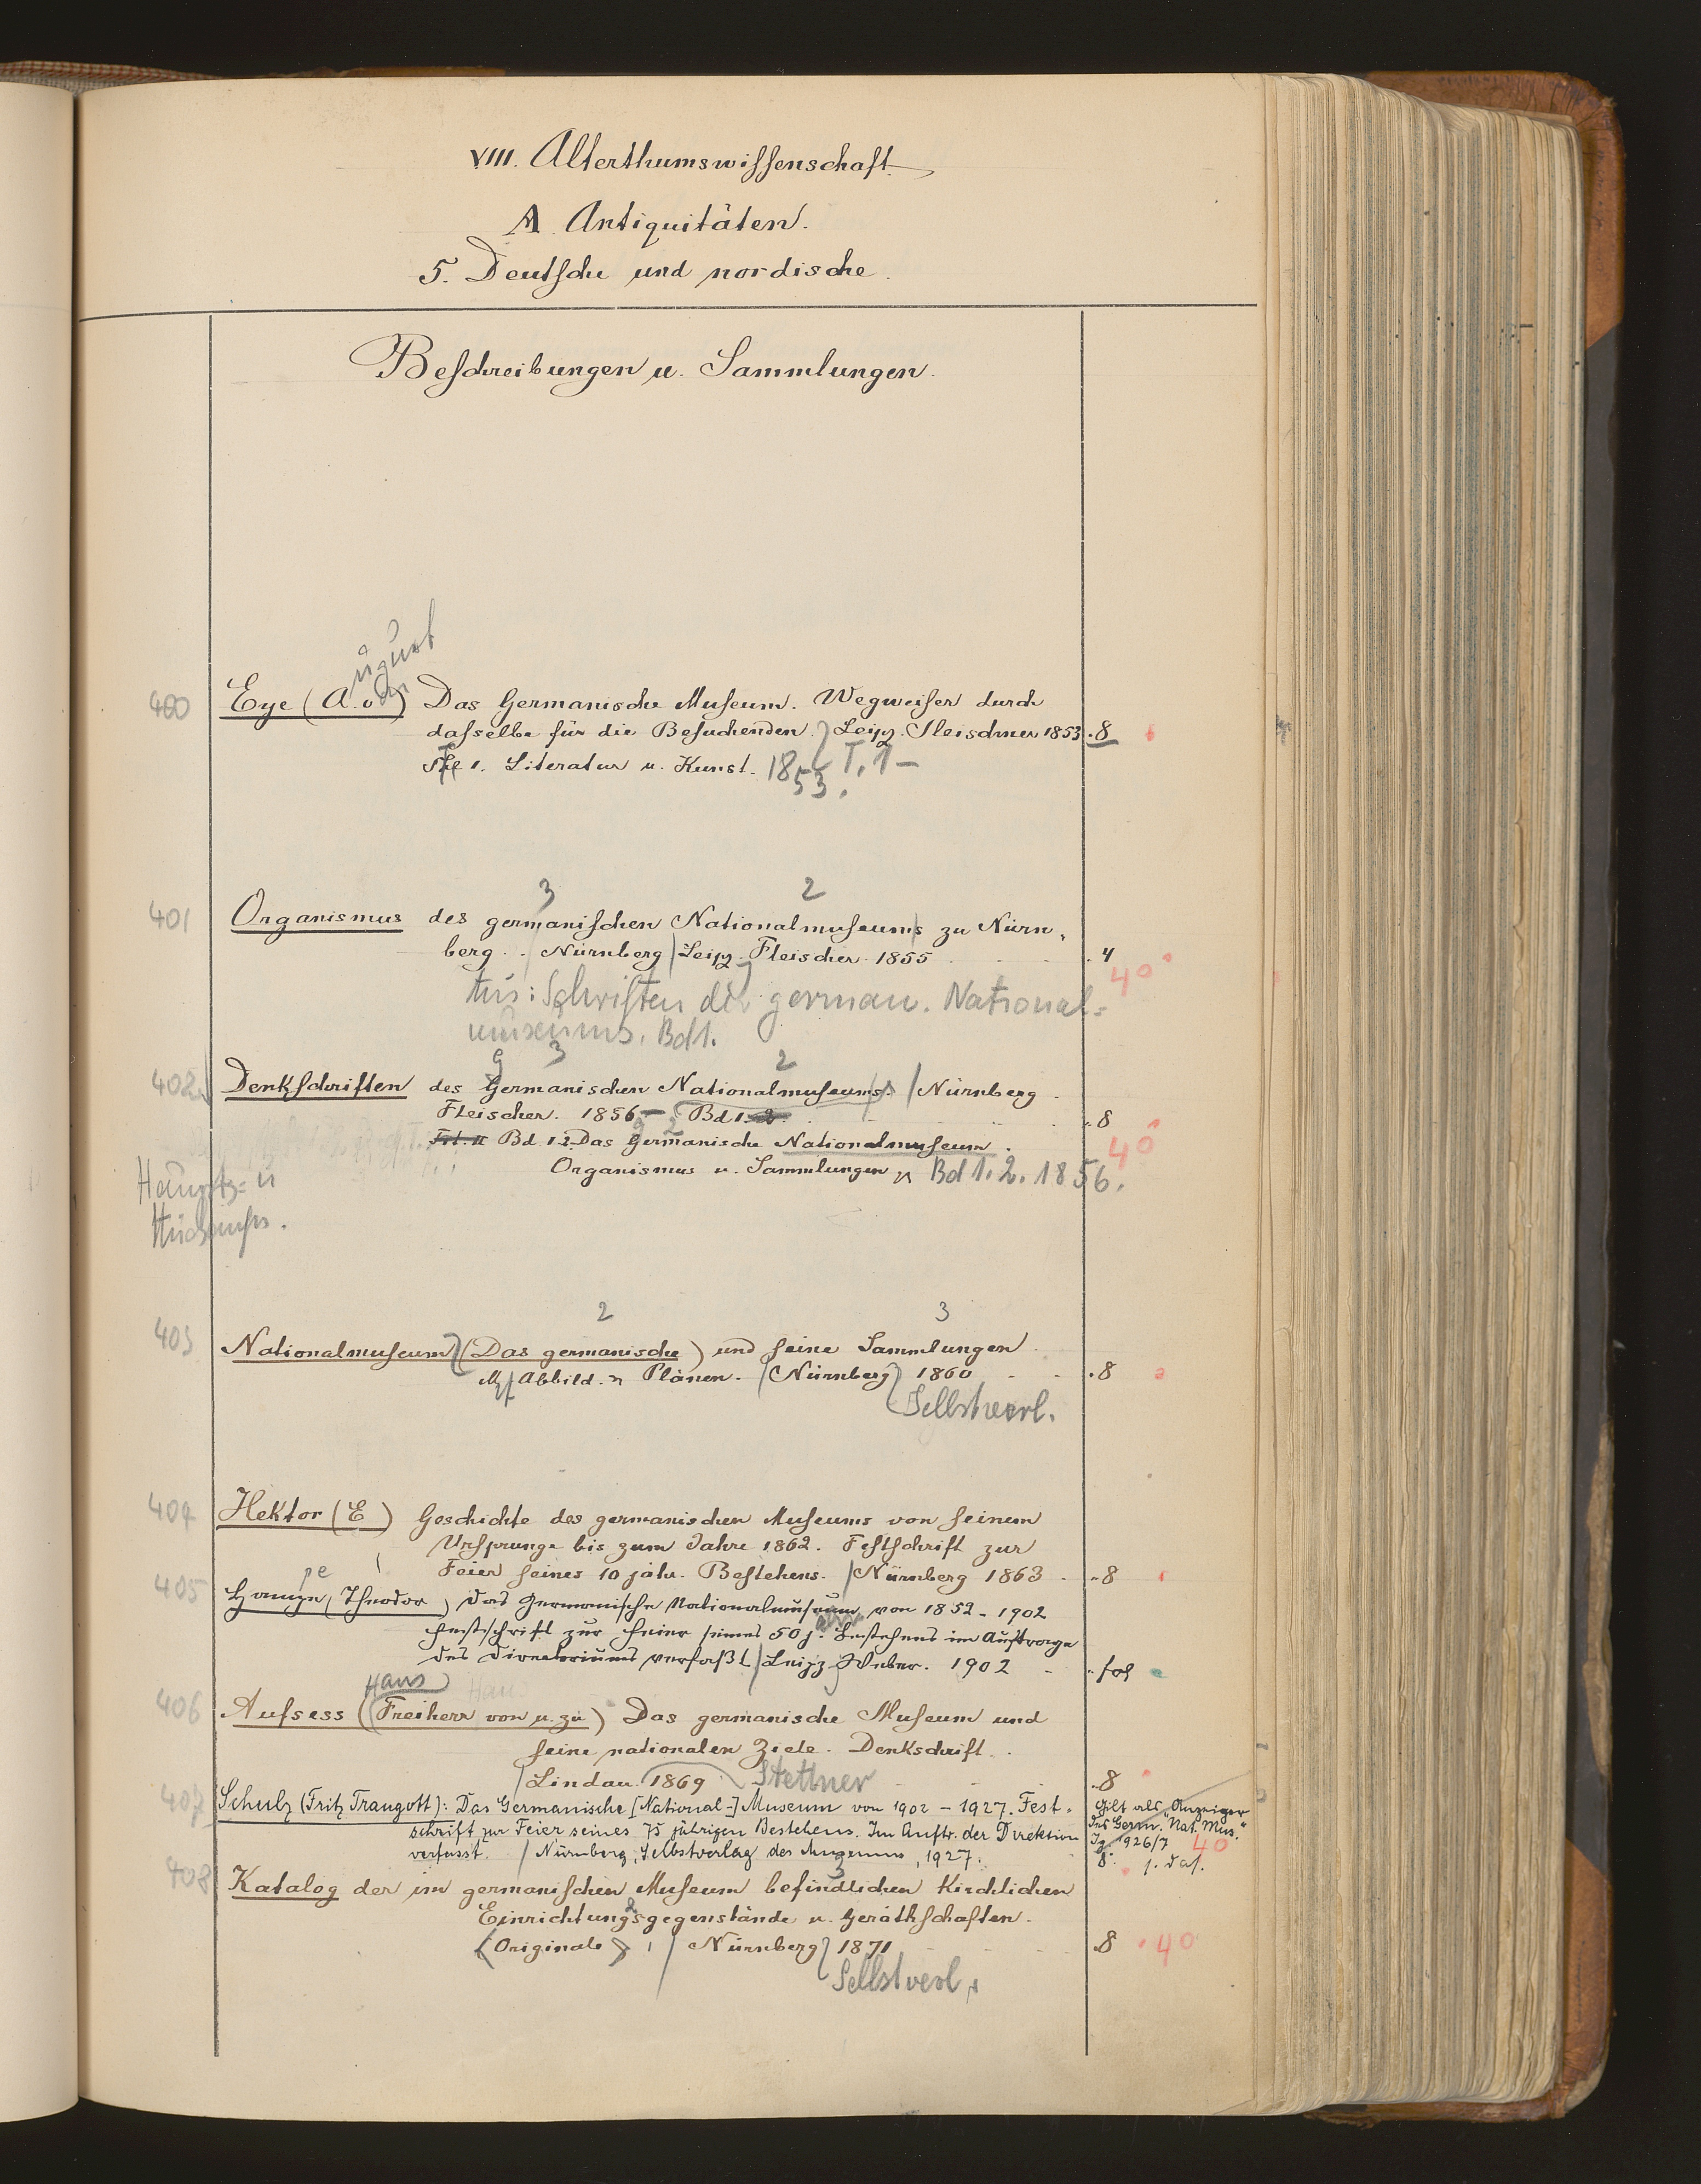 VIII. Alterthumswissenschaft.
A Antiquitäten.
5. Deutsche und nordische.
Beschreibungen u. Sammlungen.
ugust
400 Eye (A. v.) Das Germanische Museum. Wegweiser durch
dasselbe für die Besuchenden. Leipz. Fleischner 1853 8
Thl 1. Literatur u. Kunst. 1853. T. 1–
3 2
401 Organismus des germanischen Nationalmuseums zu Nürn-
berg. Nürnberg Leipz. Fleischer 1855 4
4°
Aus: Schriften des german. National=
museums. Bd 1.
g 3 2
402 Denkschriften des Germanischen Nationalmuseums. Nürnberg
Fleischer. 1856– Bd 1.2. 8
Bd 1.2. Das Germanische Nationalmuseum. 4°
Organismus u. Sammlungen Bd 1. 2. 1856.
Haupt= u
2 3
403 Nationalmuseum (Das germanische) und seine Sammlungen.
M Abbild. u Plänen. Nürnberg 1860 8
Selbstverl.
404 Hektor (E) Geschichte des germanischen Museums von seinem
Ursprunge bis zum Jahre 1862. Festschrift zur
Feier seines 10 jähr. Bestehens. Nürnberg 1863 8
pe
405 Hampe (Theodor) Das Germanische Nationalmuseum von 1852–1902
Festschrift zur Feier seines 50 j. Bestehens im Auftrage
des Direktoriums verfaßt Leipz Weber. 1902 fol
Hans
406 Aufsess (Freiherr von u. zu) Das germanische Museum und
seine nationalen Ziele. Denkschrift.
Lindau. 1869 Stettner 8
407 Schulz (Fritz Traugott): Das Germanische [National-] Museum von 1902–1927. Fest-
schrift zur Feier seines 75 jährigen Bestehens. Im Auftr. der Direktion
verfasst. Nürnberg, Selbstverlag des Museums, 1927.
Gilt als "Anzeiger
des Germ. Nat. Mus."
Jg. 1926/7 4°
8° s. das.
408 Katalog der im germanischen Museum befindlichen Kirchlichen
Einrichtungsgegenstände u. Geräthschaften.
(Originale) Nürnberg 1871 8 4°
Selbstverl.